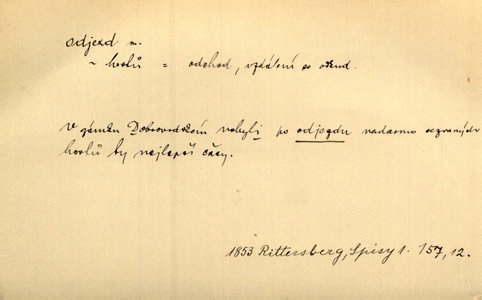 odjezd m.
~ hostů = odchod, vzdálení se odkud.
V zámku Dobrovodském nebyli po odjezdu nadarmo ozvaných
hostů ty nejlepší časy.
1853 Rittersberg, Spisy 1. 157, 12.